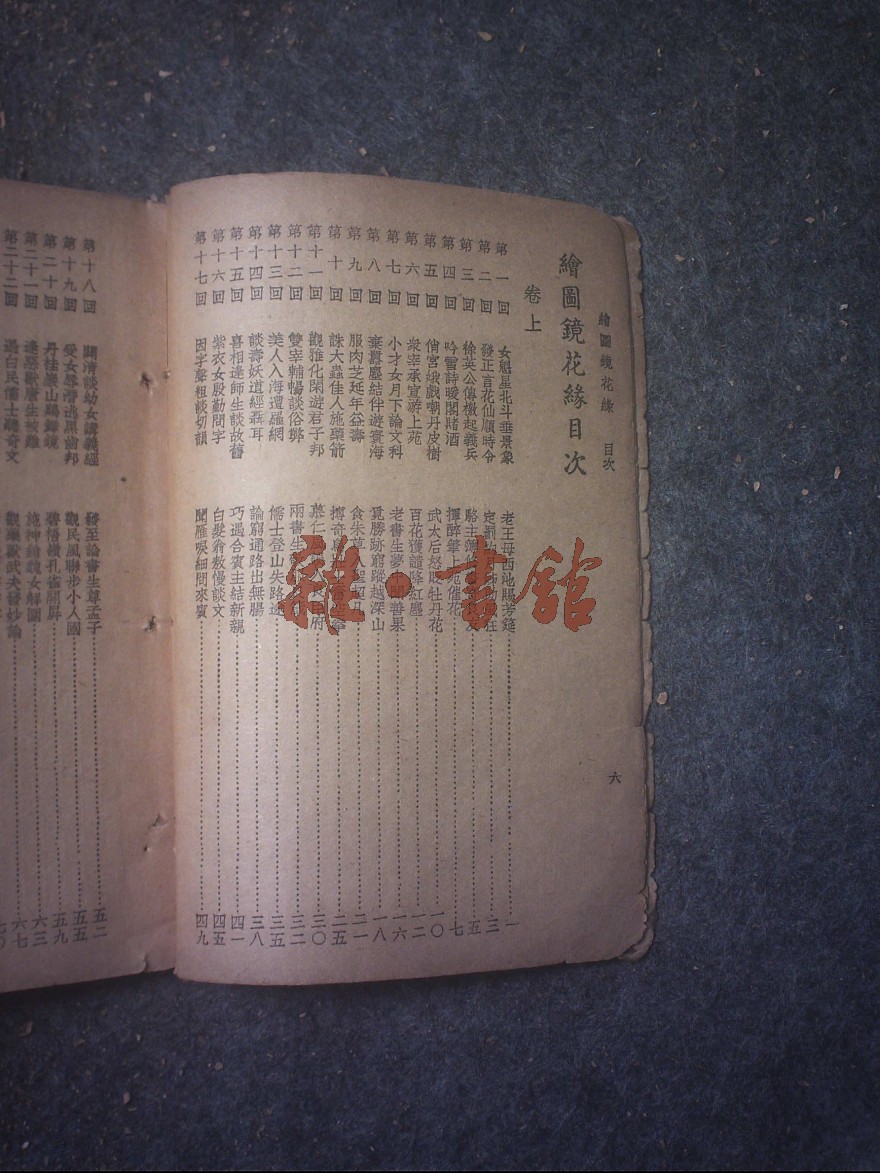 繪圖鏡花緣 目次 六
繪圖鏡花緣目次
卷上
第一回 女魁星北斗垂景象 老王母西池賜芳筵 一
第二回 發正言花仙順時令 定罰 狂 三
第三回 徐英公傳檄起義兵 駱主簿 友 五
第四回 吟雪詩暖閣賭酒 揮醉筆上苑催花 七
第五回 俏宮娥戲嘲丹皮樹 武太后怒貶牡丹花 一〇
第六回 衆宰承宣游上苑 百花獲譴降紅塵 一二
第七回 小才女月下論文科 老書生夢中聞善果 一六
第八回 棄囂塵結伴遊寰海 覓勝跡窮蹤越深山 一八
第九回 服肉芝延年益壽 食朱草 聖超凡 二一
第十回 誅大蟲佳人施藥箭 搏奇鳥 拳 二五
第十一回 觀雅化閑遊君子邦 慕仁 府 三〇
第十二回 雙宰輔暢談俗弊 兩書生 三二
第十三回 美人入海遭羅網 儒士登山失路途 三五
第十四回 談壽妖道經聶耳 論窮通路出無腸 三八
第十五回 喜相逢師生談故舊 巧遇合賓主結新親 四一
第十六回 紫衣女殷勤問字 白髮翁傲慢談文 四五
第十七回 因字聲粗談切韻 聞雁唳細問來賓 四九
第十八回 闢清談幼女講義經 發至論書生尊孟子 五二
第十九回 受女辱潛逃黑齒邦 觀民風聯步小人國 五五
第二十回 丹桂巖山雞舞鏡 碧梧嶺孔雀開屏 五九
第二十一回 逢惡獸唐生被難 施神鎗魏女解圍 六三
第二十二回 遇白民儒士聽奇文 觀藥獸武夫發妙論 六七
七〇
雜·書館